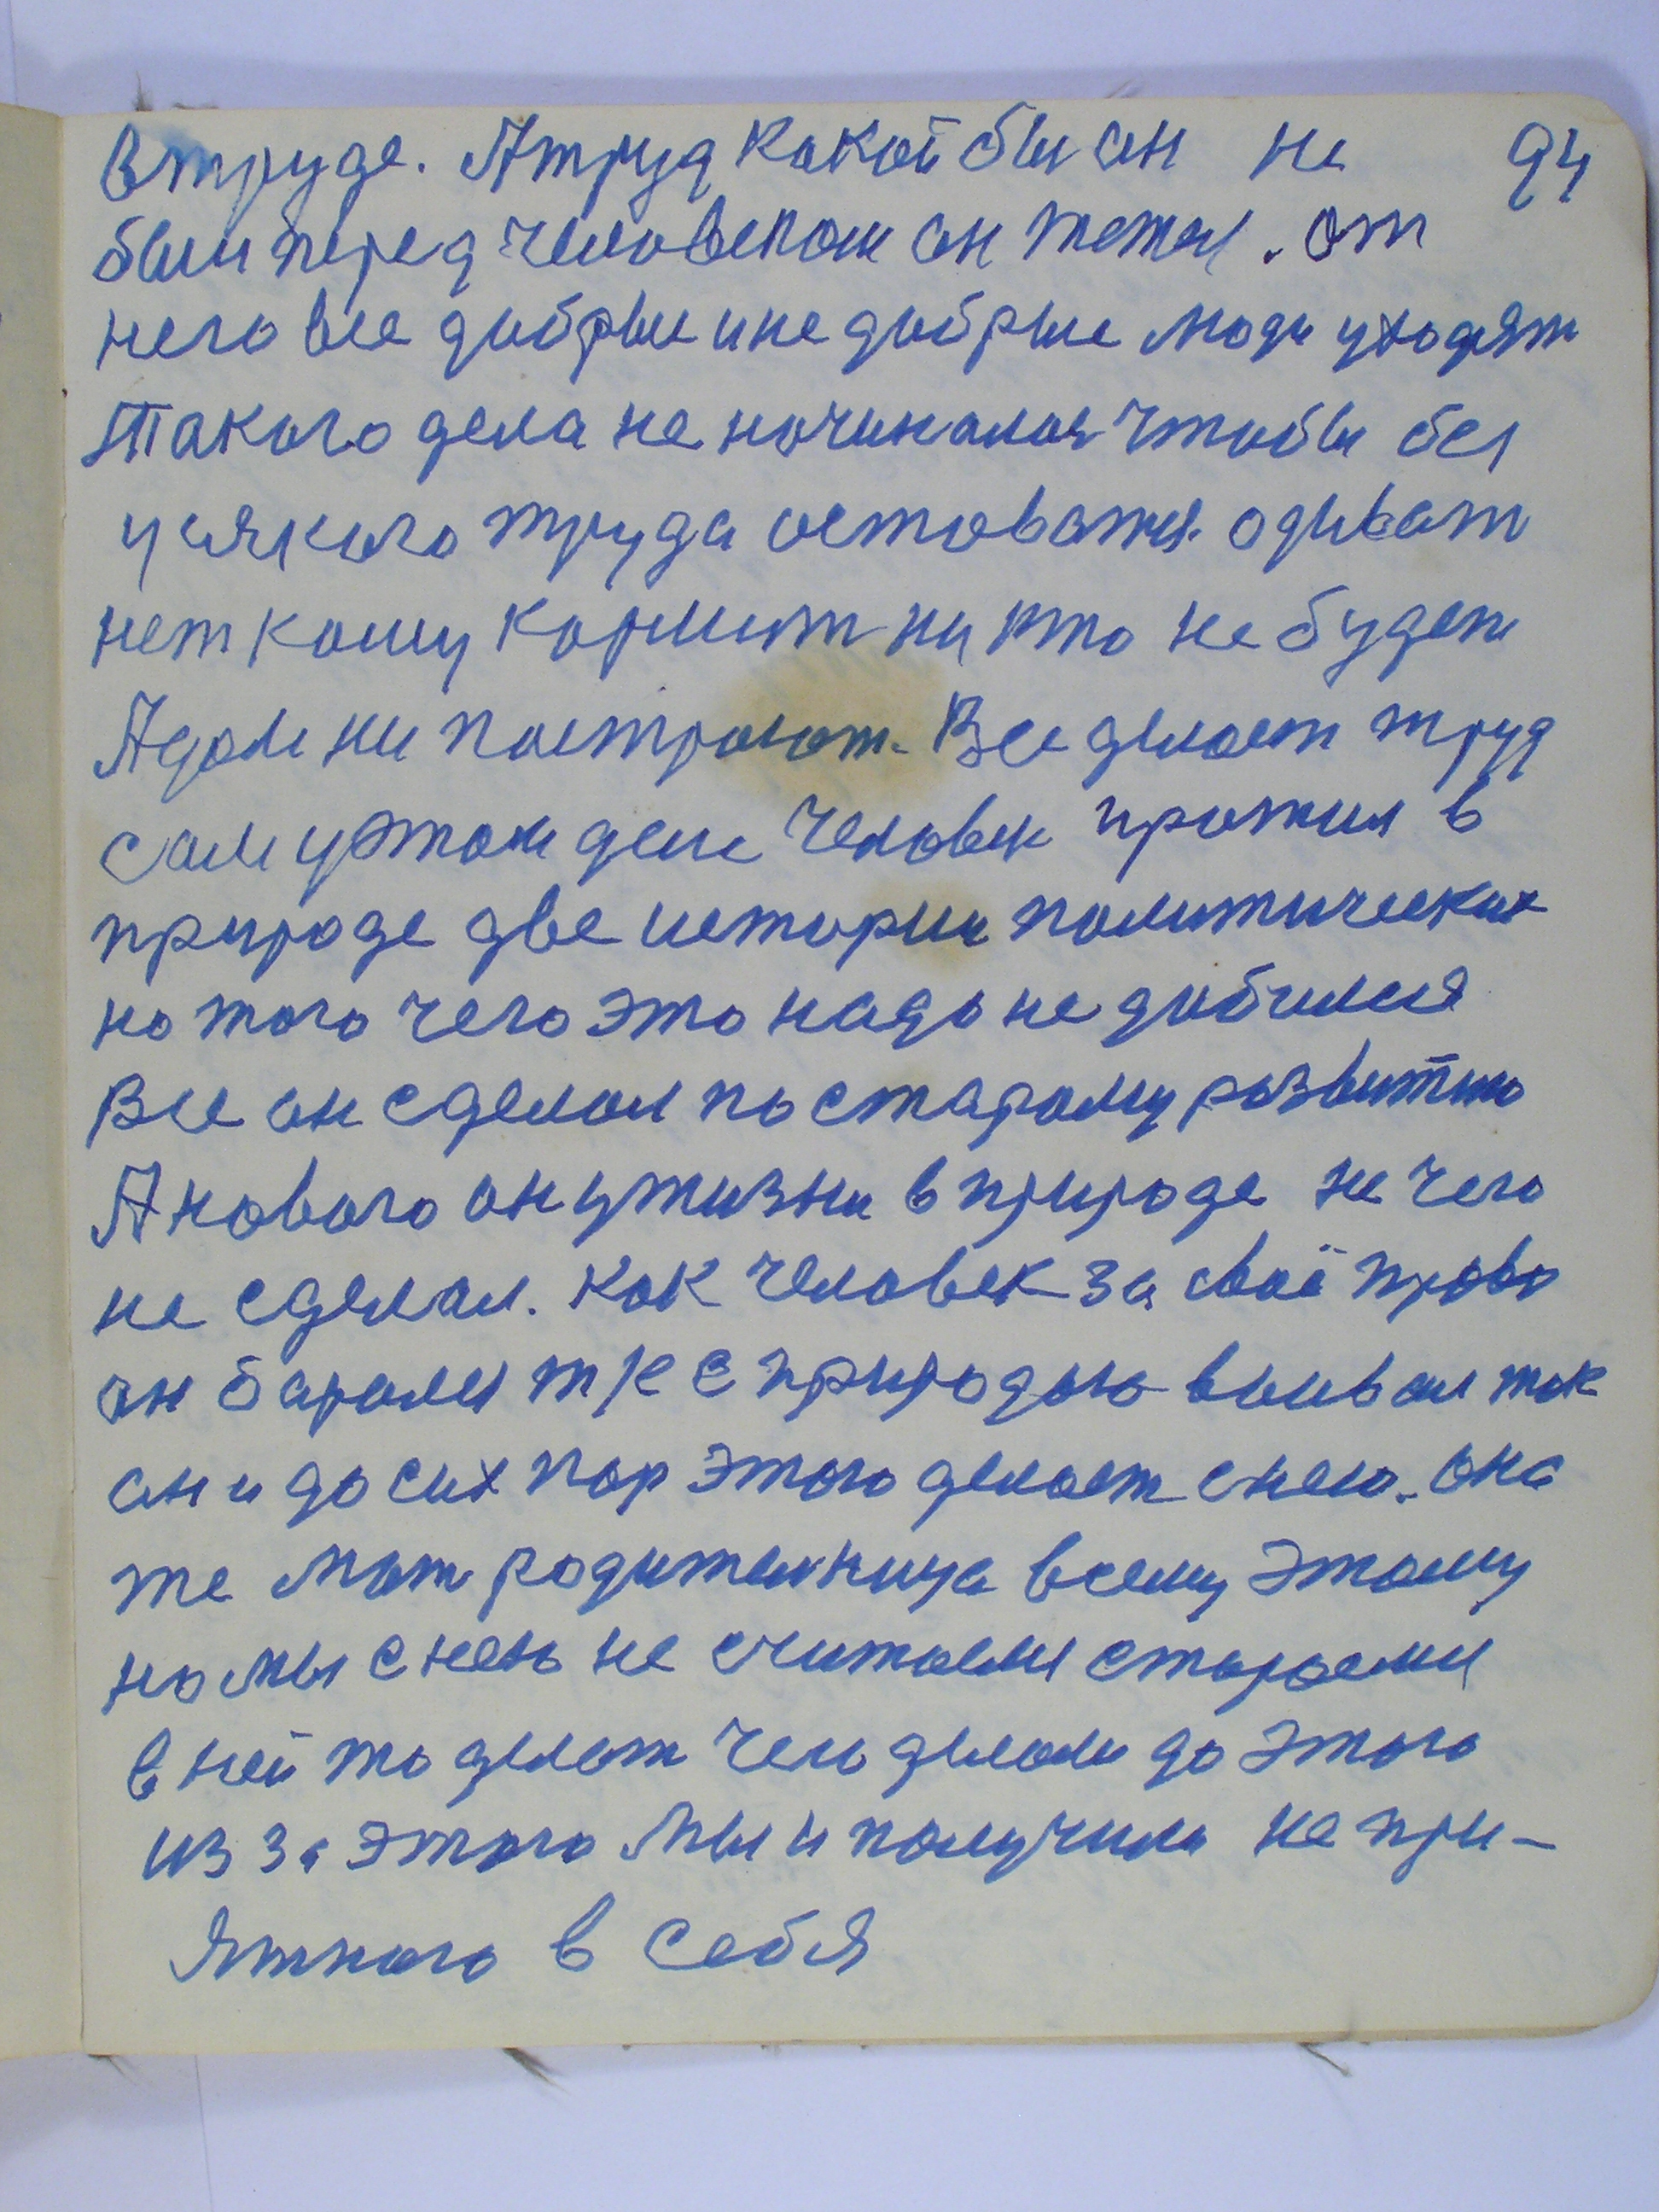 в труде. А труд какой бы он не 94
был перед человеком он тежол. от
него все добрые и не добрые люди уходят
Такого дела не началося чтобы без
усякого труда оставатся. одиват
нет кому кормит ни кто не будет
А дом ни построют. Все делает труд
сам у этом деле человек прожил в
природе две истории политических
но того чего это надо не добился
Все он сделал по старому развитию
А нового он у жизни в природе не чего
не сделал. Как человек за своё право
он баролся т к с природою воивал так
он и до сих пор этого делает с нею. она
же мат родителница всему этому
но мы с нею не считаемся стараемся
в ней то делат чего делали до этого
из за этого мы и получили не при-
ятного в себя